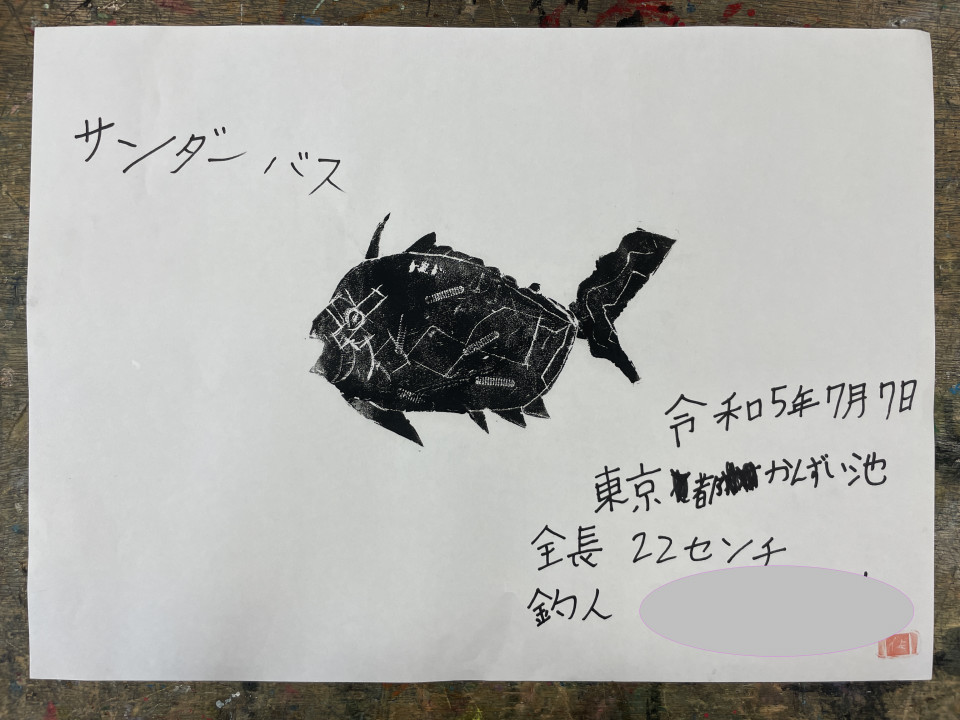 サンダーバス
トミト
令和5年7月7日
東京都かんずい池
全長 22センチ
釣人